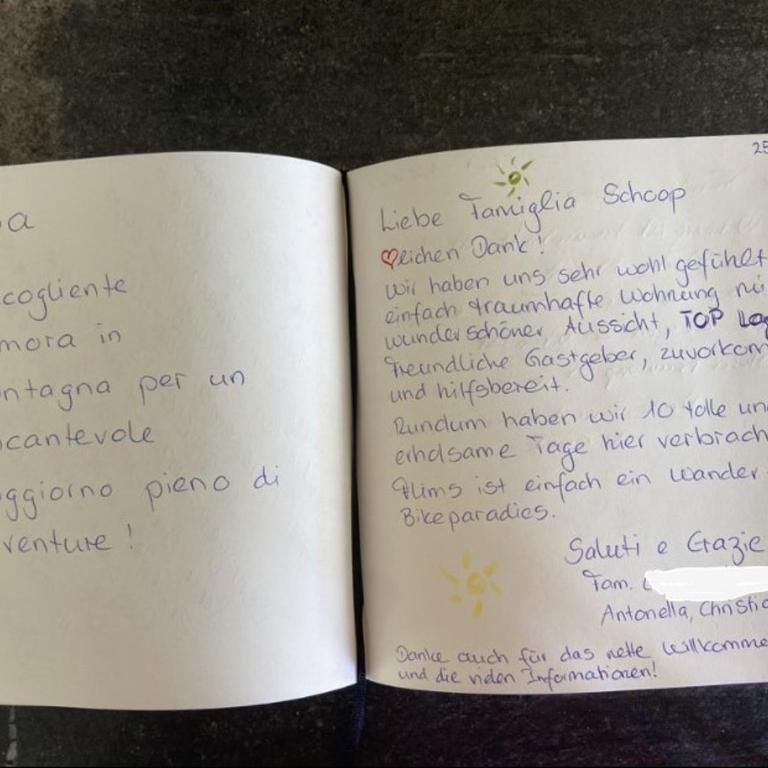 a
cogliente
mora in
ntagna per un
cantevole
ggiorno pieno di
venture!
25
Liebe Famiglia Schoop
♥lichen Dank!
Wir haben uns sehr wohl gefühlt
einfach traumhafte Wohnung mi
wunderschöner Aussicht, TOP Lag
freundliche Gastgeber, zuvorkom
und hilfsbereit.
Rundum haben wir 10 tolle un
erholsame Tage hier verbrach
Flims ist einfach ein Wander-
Bikeparadies.
Saluti e Grazie
Fam.
Antonella, Christia
Danke auch für das nette Willkomme
und die vielen Informationen!